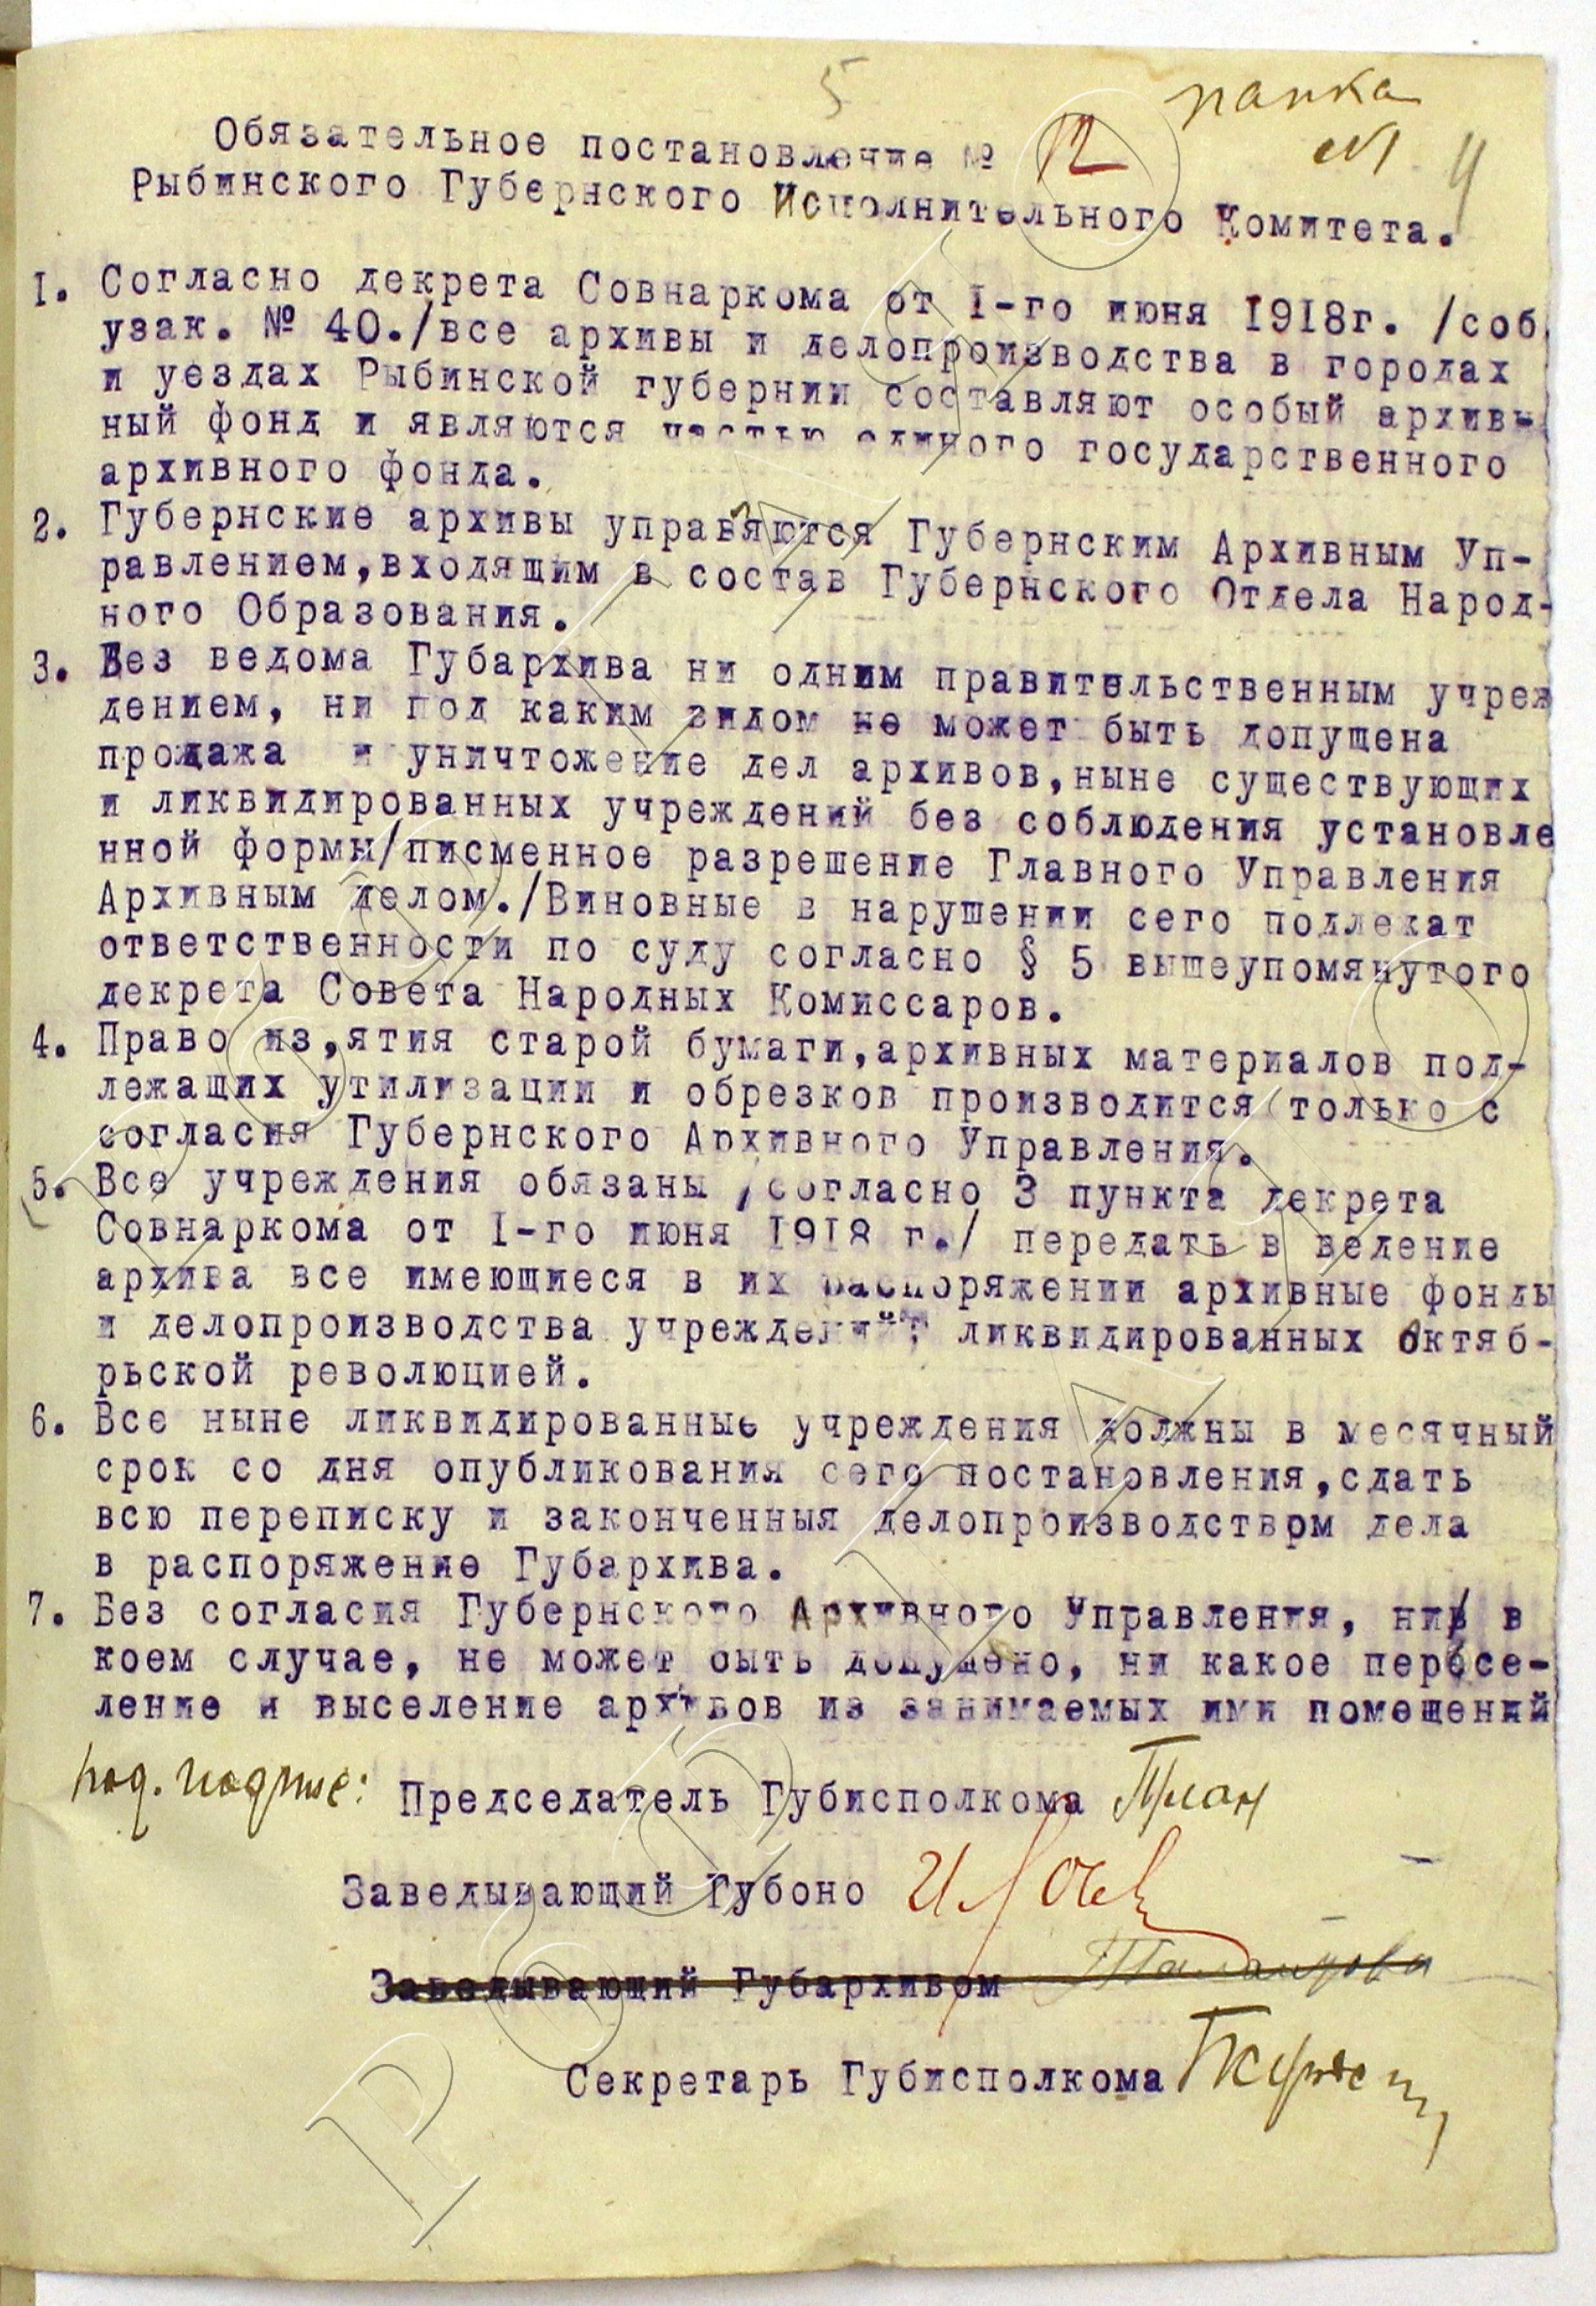 5
папка
№ 4
Обязательное постановление № 12
Рыбинского Губернского Исполнительного Комитета.
1. Согласно декрета Совнаркома от 1-го июня 1918г. /соб.
узак. № 40./все архивы и делопроизводства в городах
и уездах Рыбинской губернии составляют особый архив-
ный фонд и являются частью единого государственного
архивного фонда.
2. Губернские архивы управяются Губернским Архивным Уп-
равлением,входящим в состав Губернского Отдела Народ-
ного Образования.
3. Без ведома Губархива ни одним правительственным учреж
дением, ни под каким видом не может быть допущена
продажа и уничтожение дел архивов,ныне существующих
и ликвидированных учреждений без соблюдения установле
нной формы/писменное разрешение Главного Управления
Архивным делом./Виновные в нарушении сего подлежат
ответственности по суду согласно § 5 вышеупомянутого
декрета Совета Народных Комиссаров.
4. Право из,ятия старой бумаги,архивных материалов под-
лежащих утилизации и обрезков производится только с
согласия Губернского Архивного Управления.
5. Все учреждения обязаны /согласно 3 пункта декрета
Совнаркома от 1-го июня 1918 г./ передать в ведение
архива все имеющиеся в их распоряжении архивные фонды
и делопроизводства учреждений, ликвидированных октяб-
рьской революцией.
6. Все ныне ликвидированные учреждения должны в месячный
срок со дня опубликования сего постановления,сдать
всю переписку и законченныя делопроизводством дела
в распоряжение Губархива.
7. Без согласия Губернского Архивного Управления, ни в
коем случае, не может быть допущено, ни какое пересе-
ление и выселение архивов из занимаемых ими помещений
под. подпис: Председатель Губисполкома
Заведывающий Губоно
Заведывающий Губархивом
Секретарь Губисполкома